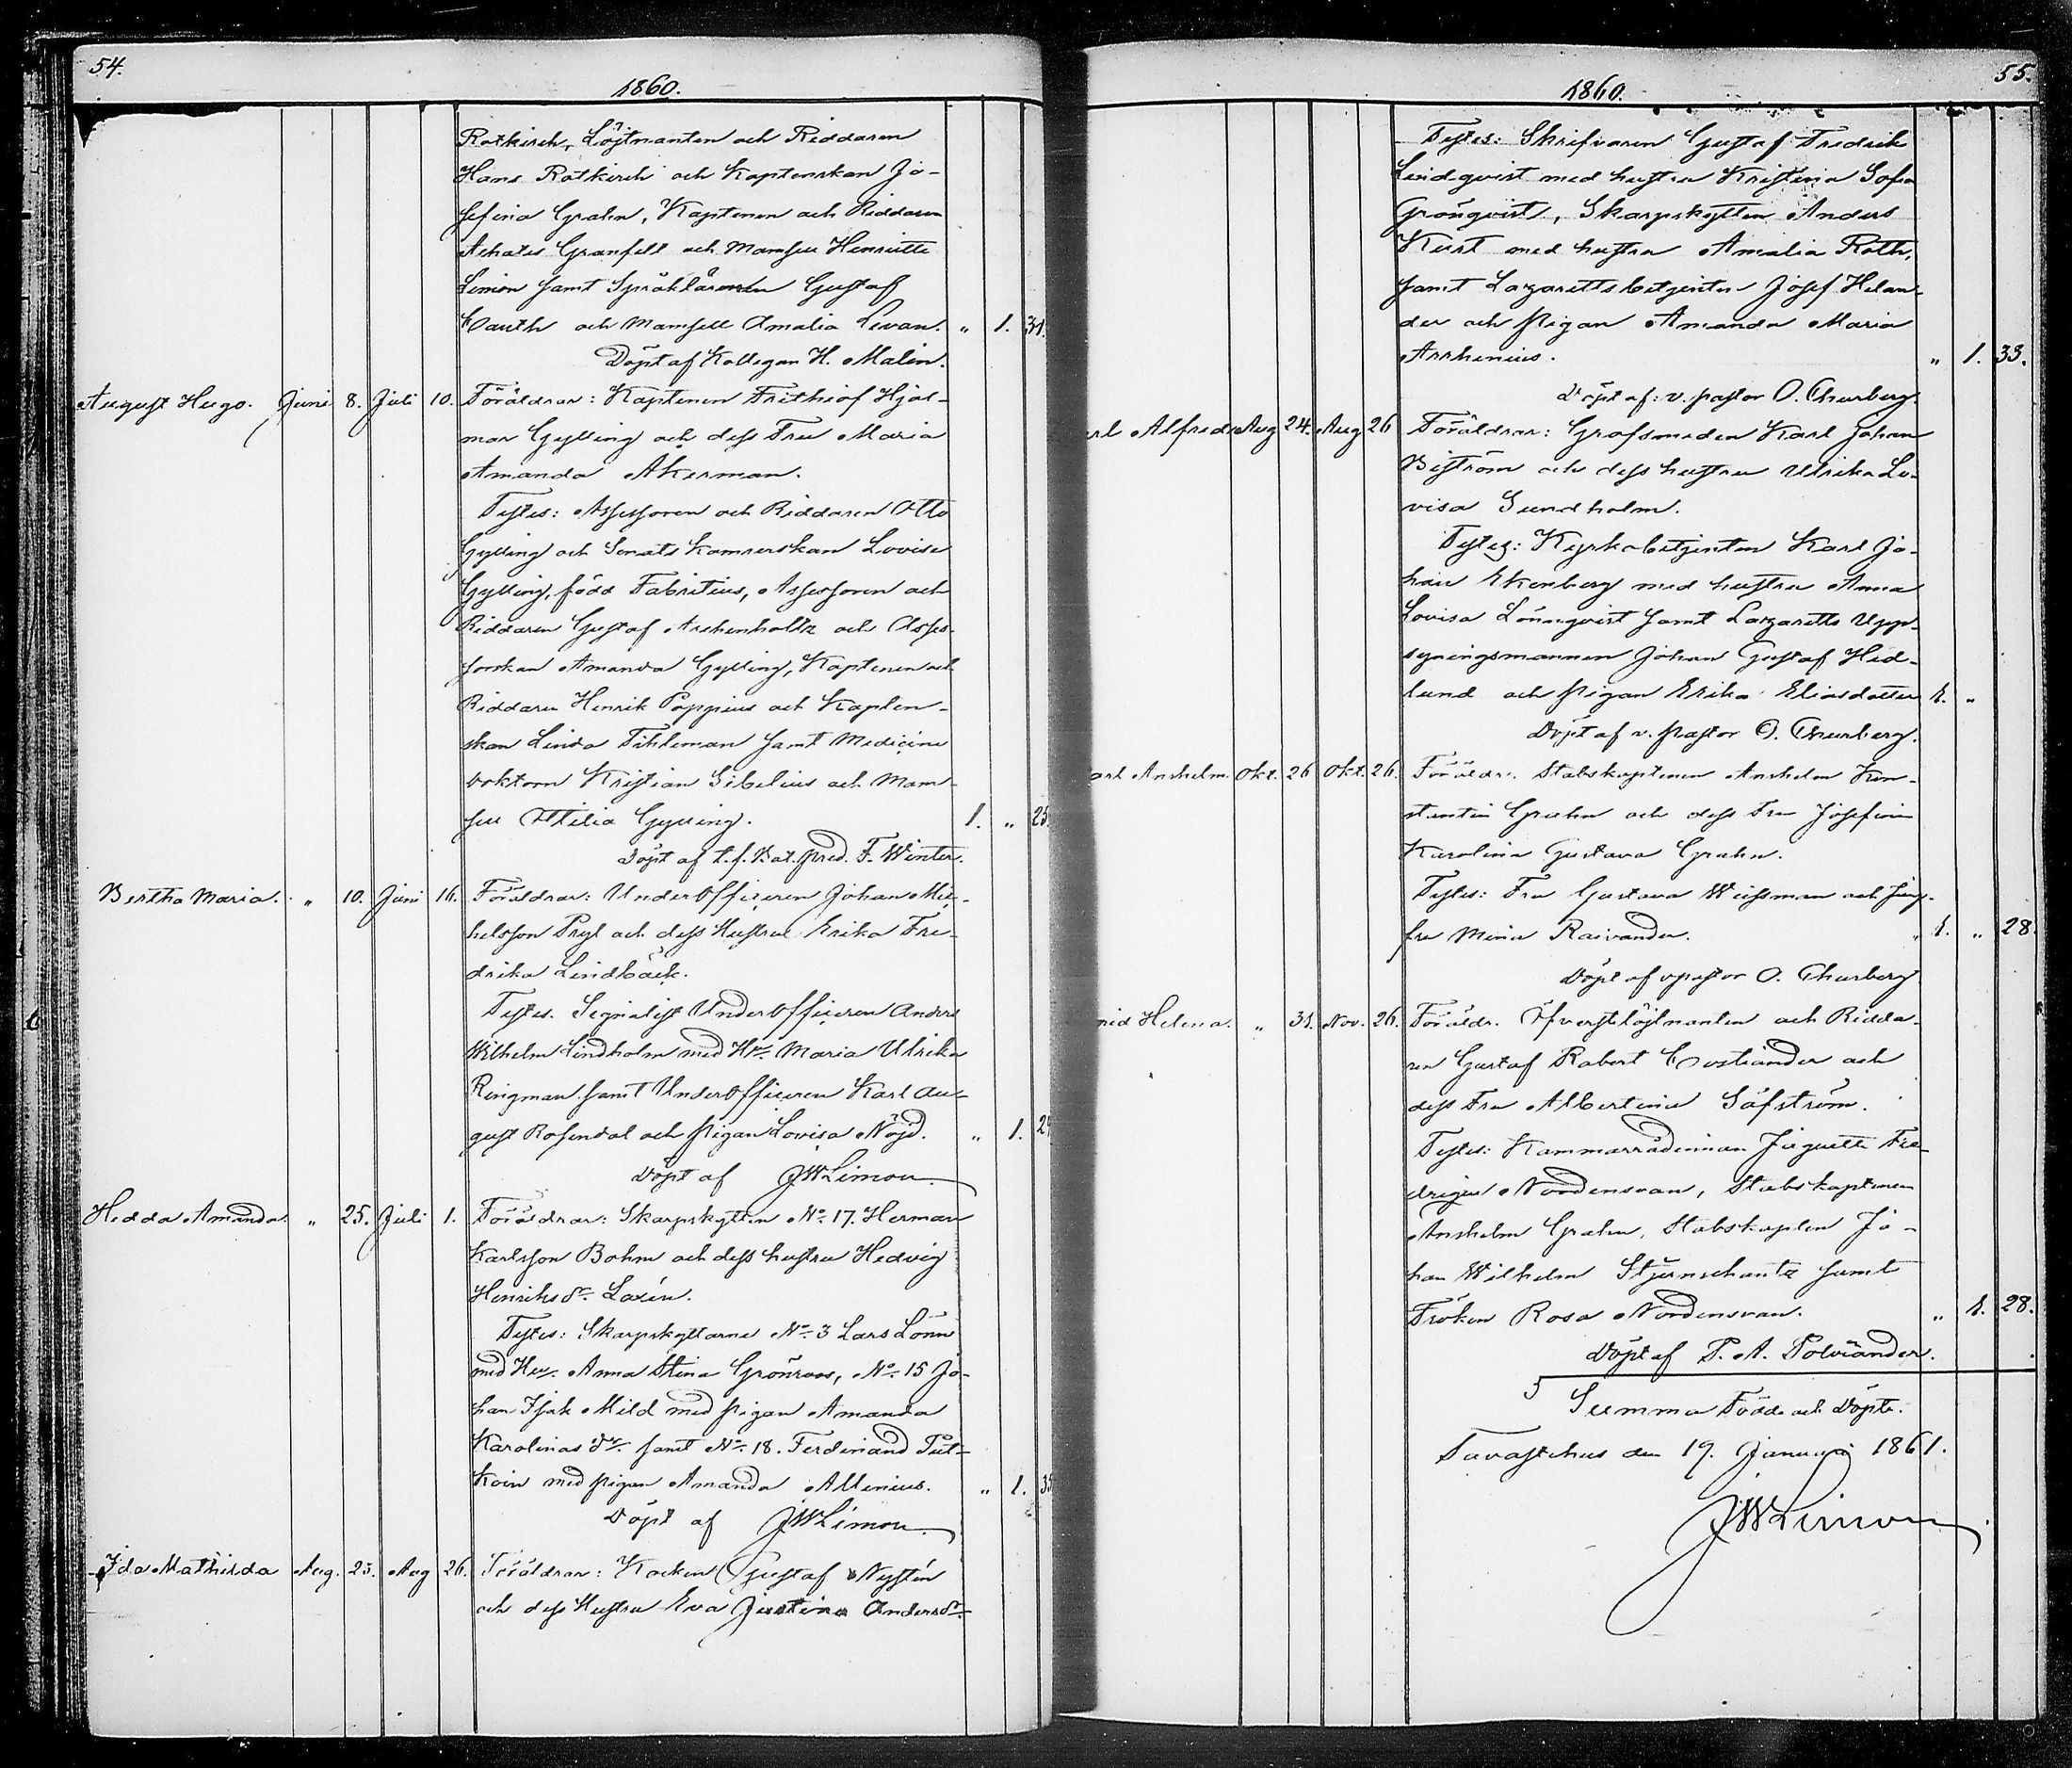 54.
1860.
Rotkirch, Löjtnanten och Riddaren
Hans Rotkirch och Kaptenskan Jo-
sefina Grahn, Kaptenen och Riddaren
Achates Granfelt och Mamsell Henriette
Limon samt Språkläraren Gustaf
Cauth och Mamsell Amalia Levan. " 1. 31.
Döpt af Kollegan H. Malin.
August Hugo. Juni 8. Juli 10. Föräldrar: Kaptenen Frithiof Hjal-
mar Gylling och dess Fru Maria
Amanda Åkerman.
Testes: Assessoren och Riddaren Otto
Gylling och Senats Kamrerskan Lovisa
Gylling, född Fabritius, Assessoren och
Riddaren Gustaf Archenholtz och Asses-
sorskan Amanda Gylling, Kaptenen och
Riddaren Henrik Poppius och Kapten-
skan Linda Tihleman samt Medicine
doktorn Kristian Sibelius och Mam-
sell Ottilia Gylling. 1. " 25
Döpt af t.f. Bat. pred. F. Winter.
Bertha Maria. " 10. Juni 16. Föräldrar: Underofficeren Johan Mic-
helsson Pryl och dess Hustru Erika Fre-
drika Lindbäck.
Testes. Signalist Underofficeren Anders
Wilhelm Lindholm med Hu. Maria Ulrika
Ringman samt Underofficeren Karl Au-
gust Rosendal och pigan Lovisa Nöjd. " 1. 29
Döpt af JWLimon
Hedda Amanda. " 25. Juli 1. Föräldrar: Skarpskytten No. 17. Herman
Karlsson Bohm och dess hustru Hedvig
Henriksdr. Laxén.
Testes: Skarpskyttarne No. 3 Lars Lönn
med Hu. Anna Stina Grönroos, No. 15 Jo-
han Isak Mild med pigan Amanda
Karolinas dr. samt No. 18. Ferdinand Put-
koin med pigan Amanda Allenius. " 1. 35
Döpt af JWLimon
Ida Mathilda Aug. 23. Aug 26. Föräldrar: Kocken Gustaf Nystén
och dess Hustru Eva Justina Andersdr.
55.
1860.
Testes: Skrifvaren Gustaf Fredrik
Lindqvist med hustru Kristina Sofia
Grönqvist, Skarpskytten Anders
Kust med hustru Amalia Roth,
samt Lazarettsbetjenten Josef Helan-
der och pigan Amanda Maria
Arrhenius. " 1. 33.
Döpt af: v. pastor O. Thurberg.
rl Alfred Aug 24. Aug 26 Föräldrar: Grofsmeden Karl Johan
Biström och dess hustru Ulrika Lo-
visa Sundholm.
Testes: Kyrkobetjenten Karl Jo-
han Ekenberg med hustru Anna
Lovisa Lönnqvist samt Lazaretts Upp-
syningsmannen Johan Gustaf Hed-
lund och pigan Erika Eliasdotter 1. "
Döpt af v. pastor O. Thurberg.
arl Anshelm. Okt. 26 Okt. 26. Föräldr. Stabskaptenen Anshelm Kon-
stantin Grahn och dess Fru Josefina
Karolina Gustava Grahn.
Testes: Fru Gustava Weissman och Jung-
fru Mina Raivander. 1. " 28.
Döpt af v pastor O. Thurberg
rid Helena. " 31. Nov. 26. Föräldr. Öfverstelöjtnanten och Ridda-
ren Gustaf Robert Costiander och
dess Fru Albertina Säfström.
Testes: Kammarrådinnan Jaquette Fre-
drique Nordensvan, Stabskaptenen
Anshelm Grahn, Stabskapten Jo-
han Wilhelm Stjernschantz samt
Fröken Rosa Nordensvan. " 1. 28.
Döpt af P. A. Polviander.
Summa Födde och Döpte.
Tavastehus den 19. Januari 1861.
JWLimon